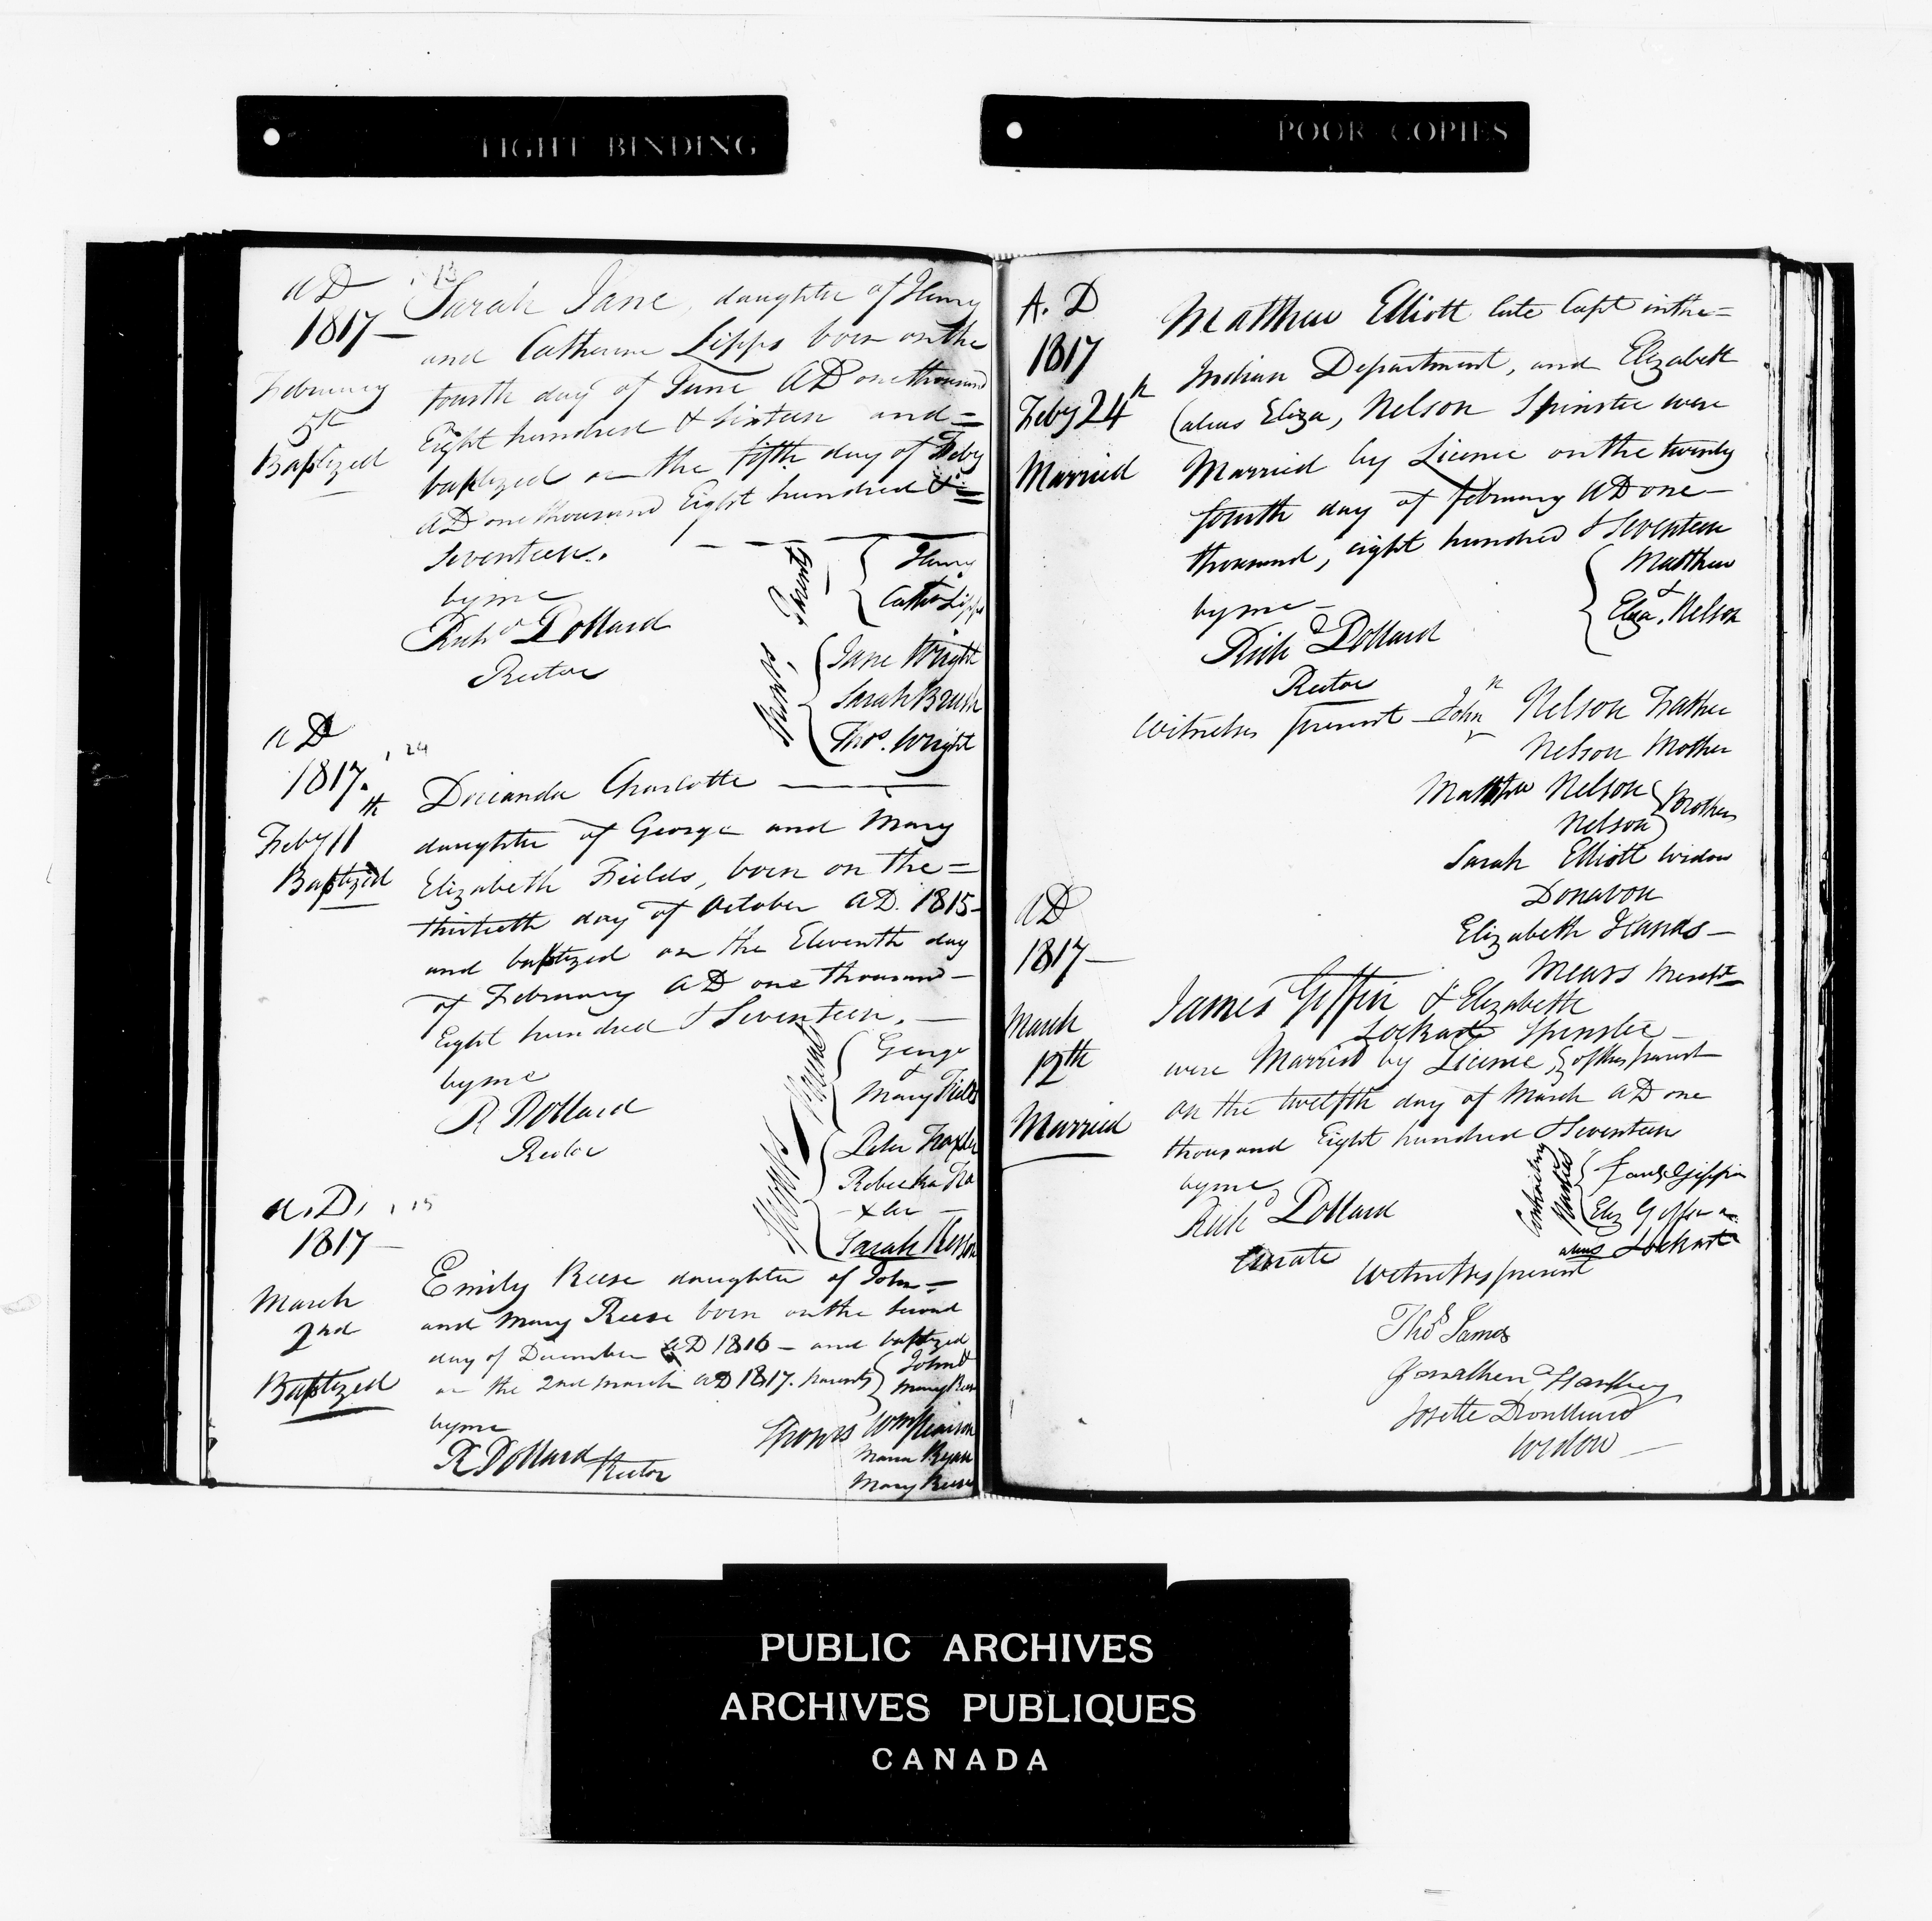 TIGHT BINDING
POOR COPIES
AD
1817 —
February
5th
Baptized
13
Sarah Jane, daughter of Henry
and Catherine Lipps born on the
fourth day of June AD one thousand
Eight hundred & sixteen and =
baptized on the fifth day of Feby
AD one thousand Eight hundred & =
Seventeen.
by me
Richd Pollard
Rector
Parents
Henry
Cathe Lipps
Sponsors,
Jane Wright
Sarah Brush
Thos. Wright
AD
1817.
Feby 11th
Baptized
Charlotte
daughter of George and Mary
Elizabeth Fields, born on the =
thirtieth day of October AD. 1815 —
and baptized on the Eleventh day
of February AD one thousand —
Eight hundred & Seventeen. —
by me
R Pollard
Rector
George
&
Mary Fields
Peter Traxler
Rebecka Tra
- xler -
Sarah
A.D. 15
1817 —
March
2nd
Baptized
Emily Reese daughter of John =
and Mary Reese born on the Second
day of December AD 1816 — and baptized
on the 2nd March AD 1817. Parents
John &
Mary Reese
by me
R Pollard Rector
Sponsors
Maria Ryan
Mary Reese
A. D
1817
Feby 24th
Married
Matthew Elliott late Capt in the =
Indian Department, and Elizabeth
(alias Eliza, Nelson Spinster were
Married by License on the twenty
fourth day of February AD one —
thousand, eight hundred & Seventeen
by me —
Richd Pollard
Rector
Matthew
&
Eliza. Nelson
Witnesses present — John Nelson Father
Nelson Mother
Matthew Nelson
Nelson
Brothers
Sarah Elliott Widow
Donavon
Elizabeth Hands —
Mears
AD
1817 —
March
12th
Married
James Giffin & Elizabeth
Lockart Spinster —
were Married by License, of this parish
on the twelfth day of March AD one
thousand Eight hundred & Seventeen
by me
Richd Pollard
Curate
Contracting
Parties
James Giffin
Eliz Giffin
alias Lockart
Witnesses present
Thos James
Jonathen
Josette
Widow —
PUBLIC ARCHIVES
ARCHIVES PUBLIQUES
CANADA